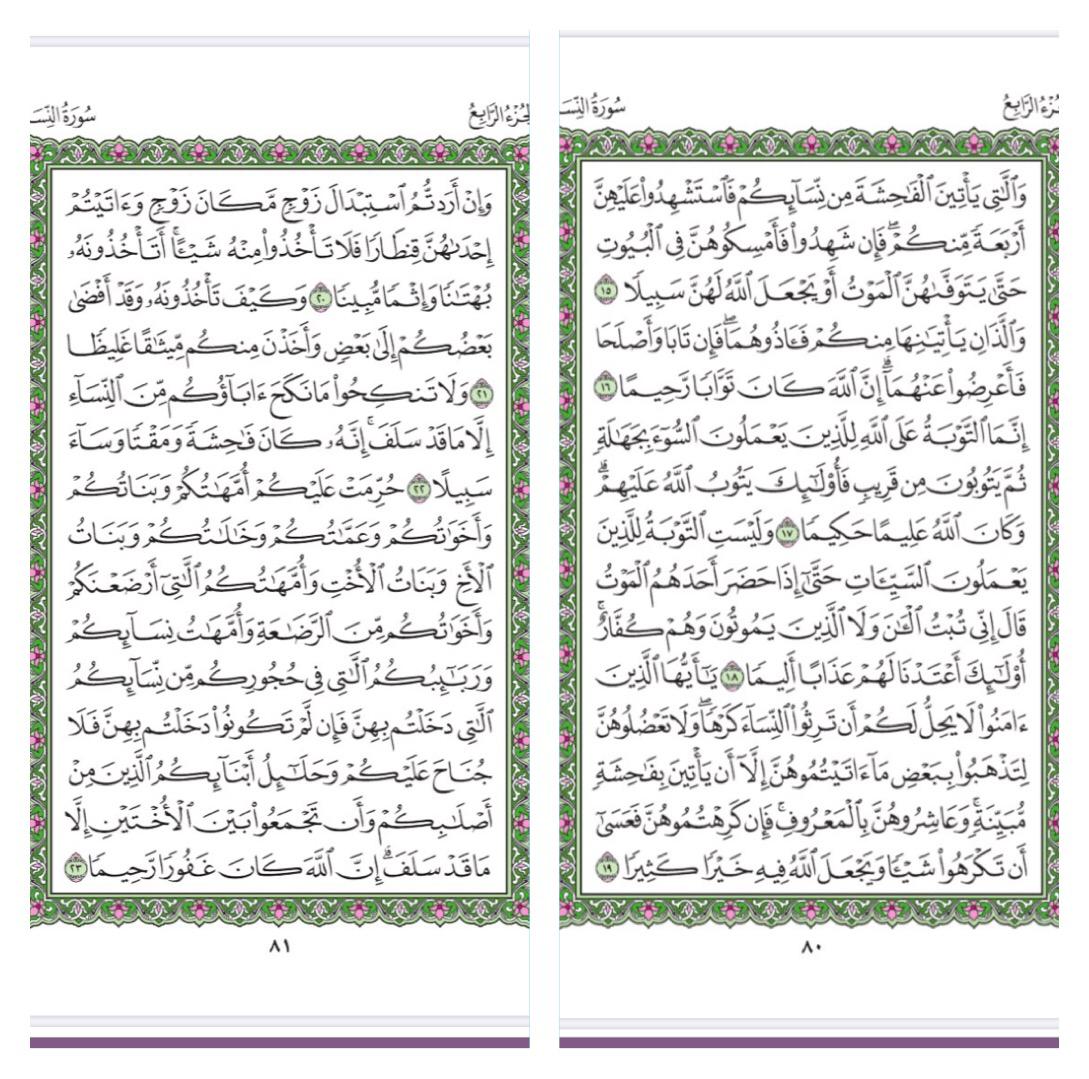 لجُزْءُ الرَّابِعُ سُورَةُ النِّسَ
وَٱلَّٰتِى يَأْتِينَ ٱلْفَٰحِشَةَ مِن نِّسَآئِكُمْ فَٱسْتَشْهِدُوا۟ عَلَيْهِنَّ
أَرْبَعَةً مِّنكُمْ ۖ فَإِن شَهِدُوا۟ فَأَمْسِكُوهُنَّ فِى ٱلْبُيُوتِ
حَتَّىٰ يَتَوَفَّىٰهُنَّ ٱلْمَوْتُ أَوْ يَجْعَلَ ٱللَّهُ لَهُنَّ سَبِيلًا ١٥
وَٱلَّذَانِ يَأْتِيَٰنِهَا مِنكُمْ فَـَٔاذُوهُمَا ۖ فَإِن تَابَا وَأَصْلَحَا
فَأَعْرِضُوا۟ عَنْهُمَآ ۗ إِنَّ ٱللَّهَ كَانَ تَوَّابًا رَّحِيمًا ١٦
إِنَّمَا ٱلتَّوْبَةُ عَلَى ٱللَّهِ لِلَّذِينَ يَعْمَلُونَ ٱلسُّوٓءَ بِجَهَٰلَةٍ
ثُمَّ يَتُوبُونَ مِن قَرِيبٍ فَأُو۟لَٰٓئِكَ يَتُوبُ ٱللَّهُ عَلَيْهِمْ ۗ
وَكَانَ ٱللَّهُ عَلِيمًا حَكِيمًا ١٧ وَلَيْسَتِ ٱلتَّوْبَةُ لِلَّذِينَ
يَعْمَلُونَ ٱلسَّيِّـَٔاتِ حَتَّىٰٓ إِذَا حَضَرَ أَحَدَهُمُ ٱلْمَوْتُ
قَالَ إِنِّى تُبْتُ ٱلْـَٰٔنَ وَلَا ٱلَّذِينَ يَمُوتُونَ وَهُمْ كُفَّارٌ ۚ
أُو۟لَٰٓئِكَ أَعْتَدْنَا لَهُمْ عَذَابًا أَلِيمًا ١٨ يَٰٓأَيُّهَا ٱلَّذِينَ
ءَامَنُوا۟ لَا يَحِلُّ لَكُمْ أَن تَرِثُوا۟ ٱلنِّسَآءَ كَرْهًا ۖ وَلَا تَعْضُلُوهُنَّ
لِتَذْهَبُوا۟ بِبَعْضِ مَآ ءَاتَيْتُمُوهُنَّ إِلَّآ أَن يَأْتِينَ بِفَٰحِشَةٍ
مُّبَيِّنَةٍ ۚ وَعَاشِرُوهُنَّ بِٱلْمَعْرُوفِ ۚ فَإِن كَرِهْتُمُوهُنَّ فَعَسَىٰٓ
أَن تَكْرَهُوا۟ شَيْـًٔا وَيَجْعَلَ ٱللَّهُ فِيهِ خَيْرًا كَثِيرًا ١٩
٨٠
لجُزْءُ الرَّابِعُ سُورَةُ النِّسَ
وَإِنْ أَرَدتُّمُ ٱسْتِبْدَالَ زَوْجٍ مَّكَانَ زَوْجٍ وَءَاتَيْتُمْ
إِحْدَىٰهُنَّ قِنطَارًا فَلَا تَأْخُذُوا۟ مِنْهُ شَيْـًٔا ۚ أَتَأْخُذُونَهُۥ
بُهْتَٰنًا وَإِثْمًا مُّبِينًا ٢٠ وَكَيْفَ تَأْخُذُونَهُۥ وَقَدْ أَفْضَىٰ
بَعْضُكُمْ إِلَىٰ بَعْضٍ وَأَخَذْنَ مِنكُم مِّيثَٰقًا غَلِيظًا
٢١ وَلَا تَنكِحُوا۟ مَا نَكَحَ ءَابَآؤُكُم مِّنَ ٱلنِّسَآءِ
إِلَّا مَا قَدْ سَلَفَ ۚ إِنَّهُۥ كَانَ فَٰحِشَةً وَمَقْتًا وَسَآءَ
سَبِيلًا ٢٢ حُرِّمَتْ عَلَيْكُمْ أُمَّهَٰتُكُمْ وَبَنَاتُكُمْ
وَأَخَوَٰتُكُمْ وَعَمَّٰتُكُمْ وَخَٰلَٰتُكُمْ وَبَنَاتُ
ٱلْأَخِ وَبَنَاتُ ٱلْأُخْتِ وَأُمَّهَٰتُكُمُ ٱلَّٰتِىٓ أَرْضَعْنَكُمْ
وَأَخَوَٰتُكُم مِّنَ ٱلرَّضَٰعَةِ وَأُمَّهَٰتُ نِسَآئِكُمْ
وَرَبَٰٓئِبُكُمُ ٱلَّٰتِى فِى حُجُورِكُم مِّن نِّسَآئِكُمُ
ٱلَّٰتِى دَخَلْتُم بِهِنَّ فَإِن لَّمْ تَكُونُوا۟ دَخَلْتُم بِهِنَّ فَلَا
جُنَاحَ عَلَيْكُمْ وَحَلَٰٓئِلُ أَبْنَآئِكُمُ ٱلَّذِينَ مِنْ
أَصْلَٰبِكُمْ وَأَن تَجْمَعُوا۟ بَيْنَ ٱلْأُخْتَيْنِ إِلَّا
مَا قَدْ سَلَفَ ۗ إِنَّ ٱللَّهَ كَانَ غَفُورًا رَّحِيمًا ٢٣
٨١